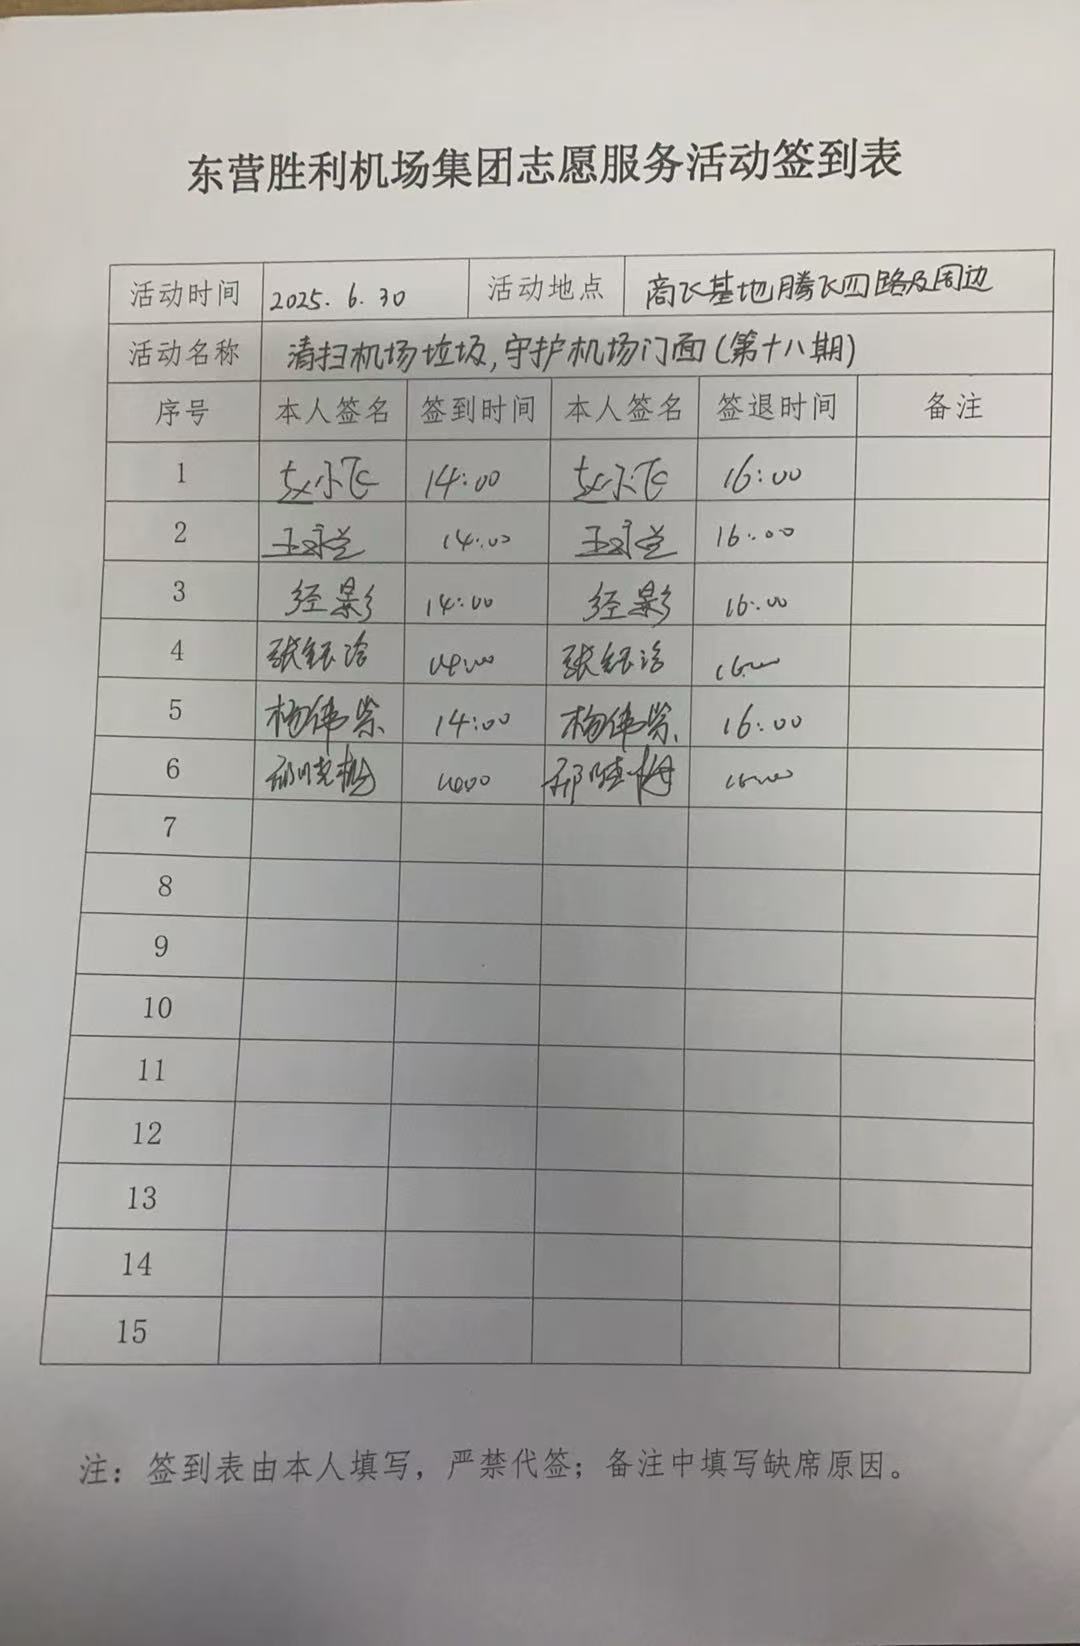 东营胜利机场集团志愿服务活动签到表
活动时间 2025.6.30 活动地点 商飞基地腾飞四路及周边
活动名称 清扫机场垃圾,守护机场门面(第十八期)
序号 本人签名 签到时间 本人签名 签退时间 备注
1 赵小飞 14:00 赵小飞 16:00
2 14:00 16:00
3 经影 14:00 经影 16:00
4 张钰涵 14:00 张钰涵 16:00
5 杨伟荣 14:00 杨伟荣 16:00
6 邢晓梅 1400 邢晓梅 16:00
7
8
9
10
11
12
13
14
15
注：签到表由本人填写，严禁代签；备注中填写缺席原因。